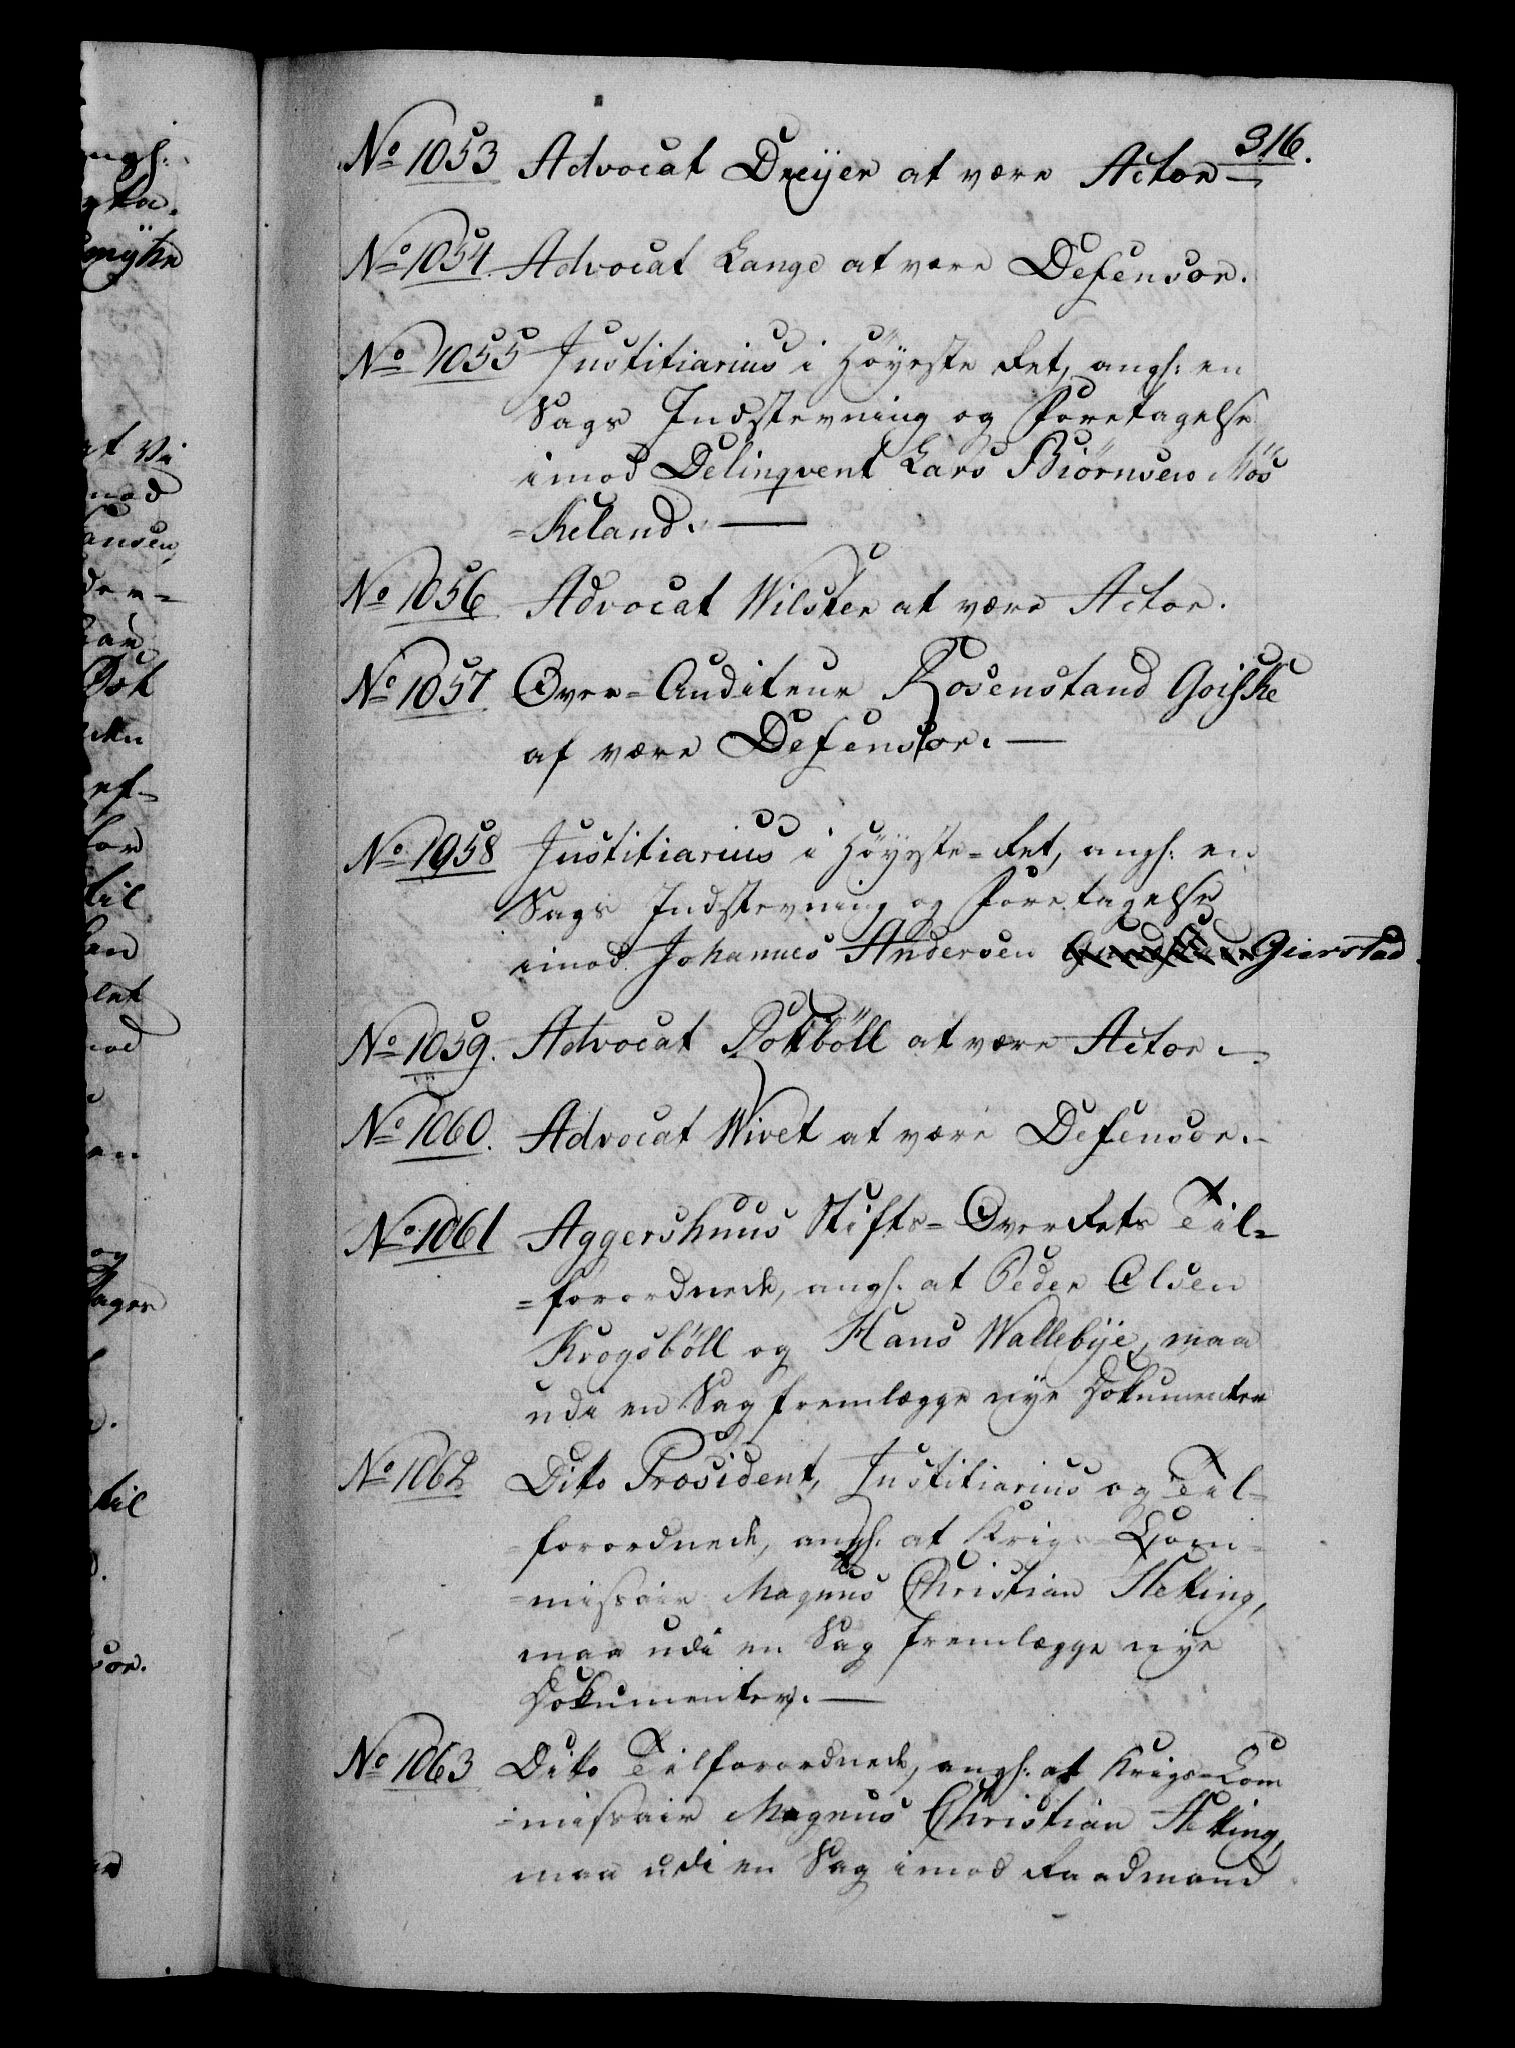 316.
No 1053 Advocat Dreÿer at være Actor —
No 1054 Advocat Lange at være Defensor.
No 1055 Justitiarius i Höyeste Ret, angs: en
Sags Indstevning og Foretagelse
imod Delinqvent Lars Biörnsen Mös
=keland. —
No 1056 Advocat Wilster at være Actor.
No 1057 Over=Auditeur Rosenstand Goiske
at være Defensor. —
No 1058 Justitiarius i Höyeste=Ret, angs: en
Sags Indstevning og Foretagelse
imod Johannes Andersen Gierstad.
No 1059. Advocat Rotböll at være Actor. —
No 1060. Advocat Wivet at være Defensor. —
No 1061 Aggershuus Stifts=Overrets Til=
=forordnede, angs. at Peder Olsen
Krogsböll og Hans Wallebÿe, maa
udi en Sag fremlægge nye Dokumenter
No 1062 Dito Præsident, Justitiarius og Til=
=forordnede, angs. at Krigs=Com=
=missair Magnus Christian Hetting,
maa udi en Sag fremlægge nye
Dokumenter. —
No 1063 Dito Tilforordnede, angs: at Krigs=Com
=missair Magnus Christian Hetting,
maa udi en Sag imod Raadmand